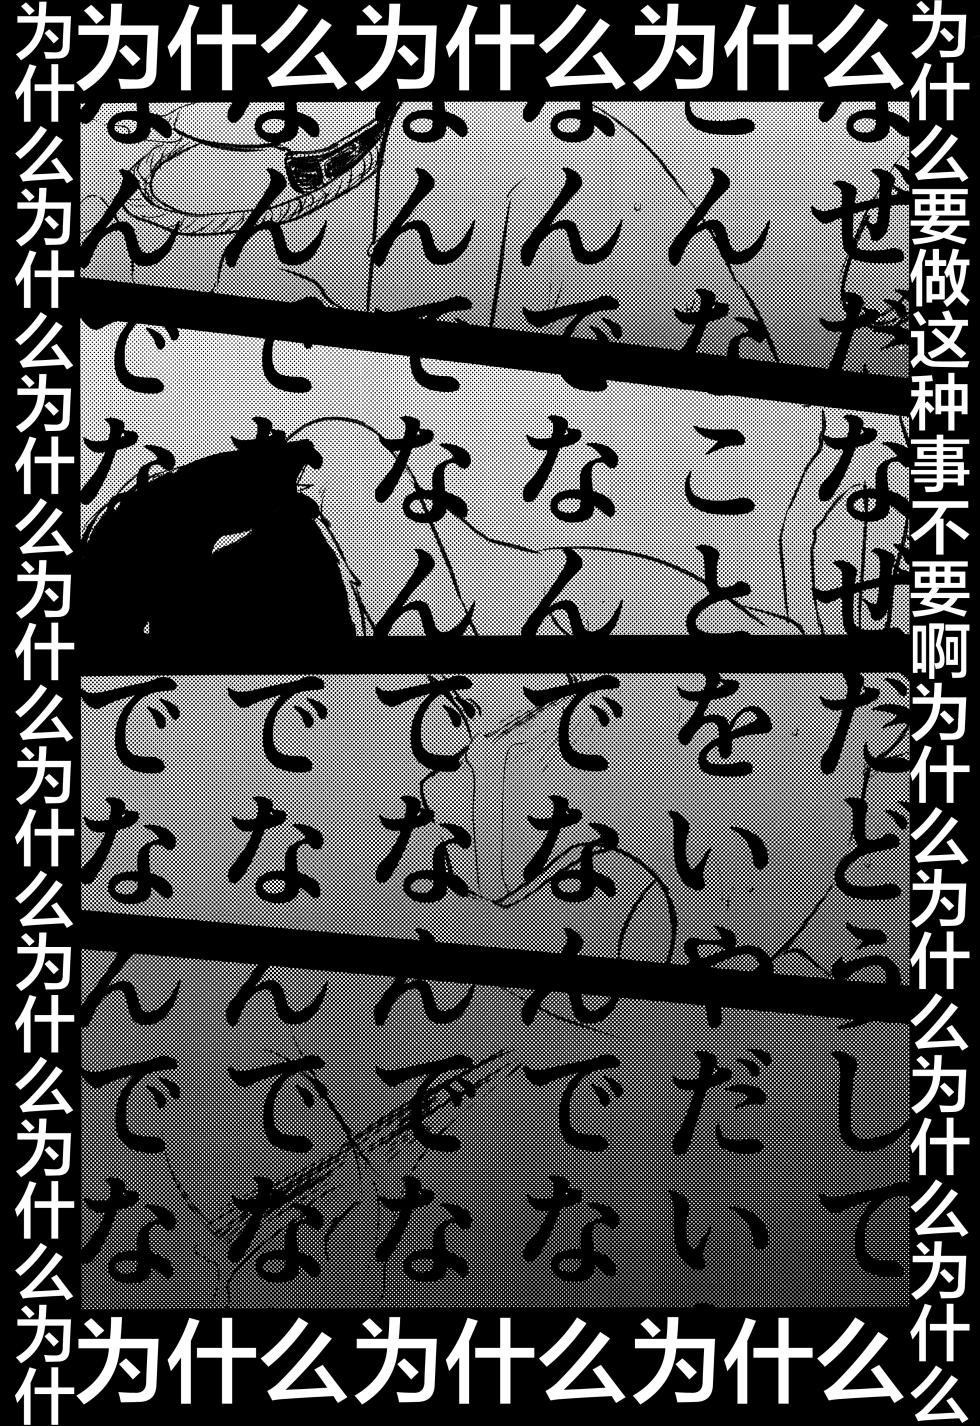 为什么为什么为什么
为什么要做这种事不要啊为什么为什么为什么为什么
なぜだなぜだどうして
こんなことをいやだい
なんでなんでなんでな
なんでなんでなんでな
なんでなでなんでな
なんでなでなんでな
为什么为什么为什么为什么为什么为什么为什么为什
为什么为什么为什么